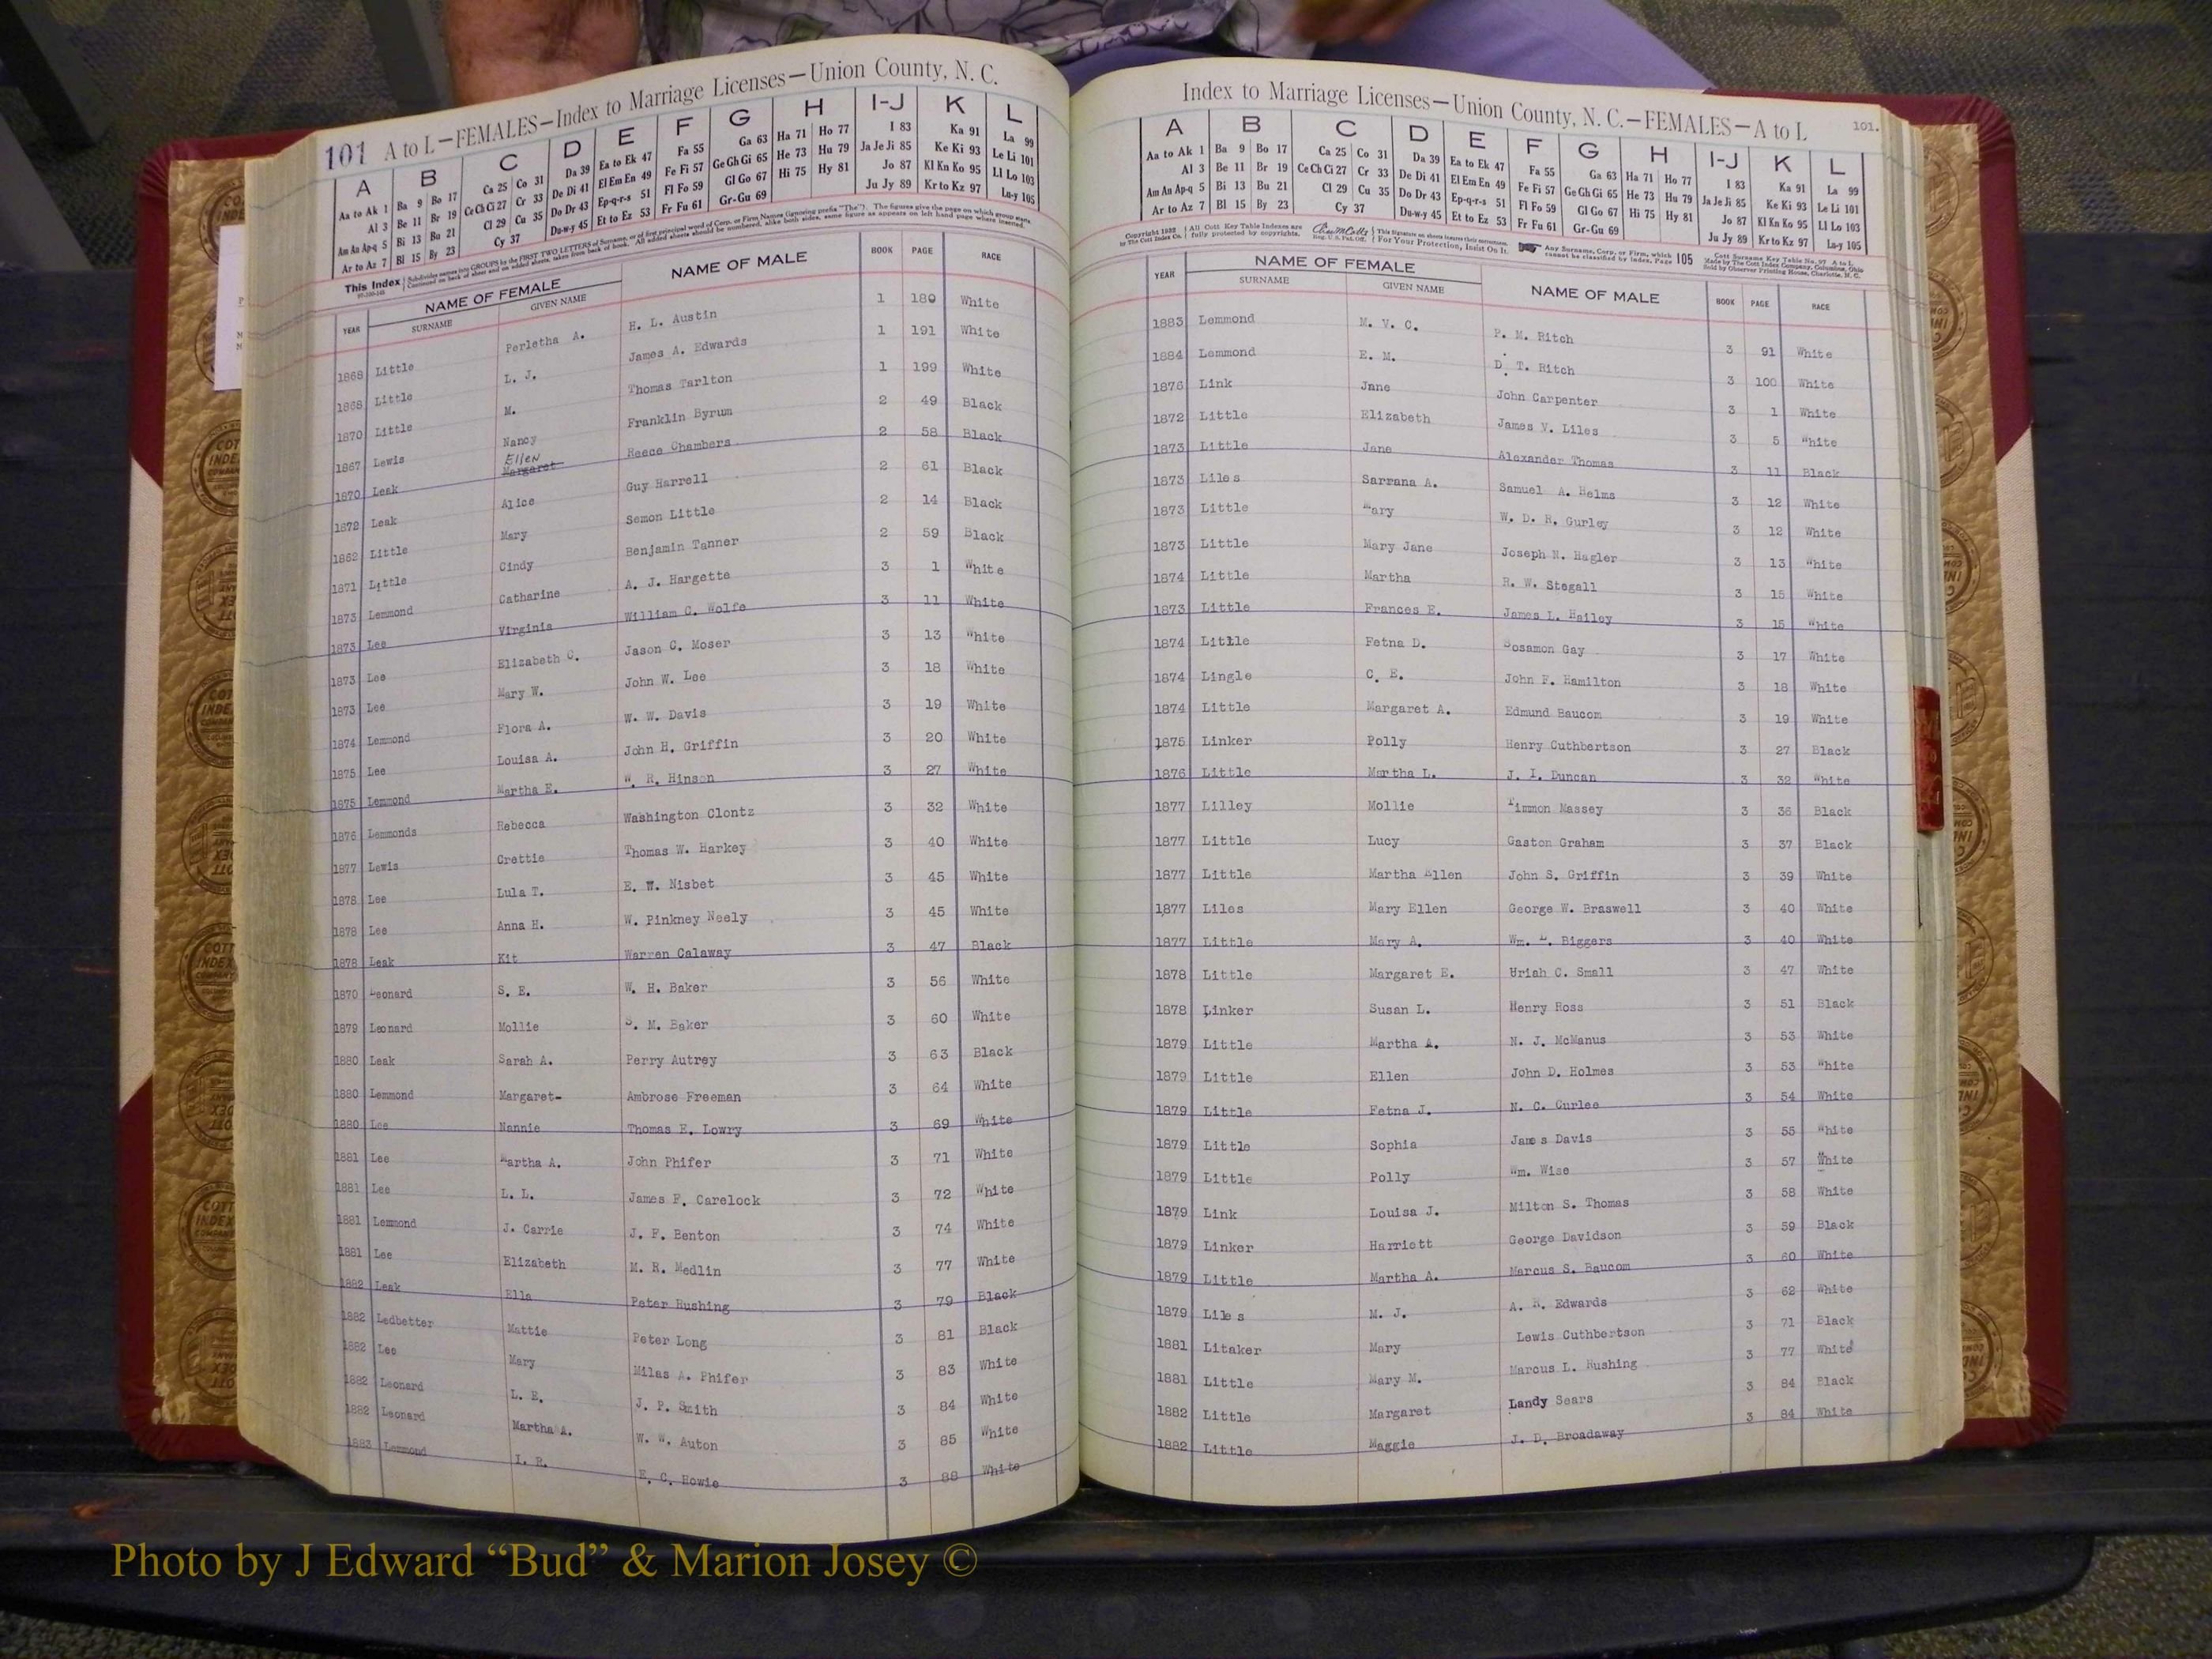 101 A to L—FEMALES—Index to Marriage Licenses—Union County, N. C.
A B C D E F G H I-J K L
Aa to Ak 1 Ba 9 Bo 17 Ca 25 Co 31 Da 39 Ea to Ek 47 Fa 55 Ga 63 Ha 71 Ho 77 I 83 Ka 91 La 99
Al 3 Be 11 Br 19 Ce Ch Ci 27 Cr 33 De Di 41 El Em En 49 Fe Fi 57 Ge Gh Gi 65 He 73 Hu 79 Ja Je Ji 85 Ke Ki 93 Le Li 101
Am An Ap-q 5 Bi 13 Bu 21 Cl 29 Cu 35 Do Dr 43 Ep-q-r-s 51 Fl Fo 59 Gl Go 67 Hi 75 Hy 81 Jo 87 Kl Kn Ko 95 Ll Lo 103
Ar to Az 7 Bl 15 By 23 Cy 37 Du-w-y 45 Et to Ez 53 Fr Fu 61 Gr-Gu 69 Ju Jy 89 Kr to Kz 97 Lu-y 105
This Index Subdivides names into GROUPS by the FIRST TWO LETTERS of Surname, or of first principal word of Corp. or Firm Names (ignoring prefix "The"). The figures give the page on which group starts.
Continued on back of sheet and on added sheets, taken from back of book. All added sheets should be numbered, alike both sides, same figure as appears on left hand page where inserted.
YEAR NAME OF FEMALE SURNAME GIVEN NAME NAME OF MALE BOOK PAGE RACE
1868 Little Perletha A. H. L. Austin 1 180 White
1868 Little L. J. James A. Edwards 1 191 White
1870 Little M. Thomas Tarlton 1 199 White
1867 Lewis Nancy Franklin Byrum 2 49 Black
1870 Leak Ellen Margaret Reece Chambers 2 58 Black
1872 Leak Alice Guy Harrell 2 61 Black
1862 Little Mary Semon Little 2 14 Black
1871 Little Cindy Benjamin Tanner 2 59 Black
1873 Lemmond Catharine A. J. Hargette 3 1 White
1873 Lee Virginia William C. Wolfe 3 11 White
1873 Lee Elizabeth C. Jason C. Moser 3 13 White
1873 Lee Mary W. John W. Lee 3 18 White
1874 Lemmond Flora A. W. W. Davis 3 19 White
1875 Lee Louisa A. John H. Griffin 3 20 White
1875 Lemmond Martha E. W. R. Hinson 3 27 White
1876 Lemmonds Rebecca Washington Clontz 3 32 White
1877 Lewis Crettie Thomas W. Harkey 3 40 White
1878 Lee Lula T. E. W. Nisbet 3 45 White
1878 Lee Anna H. W. Pinkney Neely 3 45 White
1878 Leak Kit Warren Calaway 3 47 Black
1870 Leonard S. E. W. H. Baker 3 56 White
1879 Leonard Mollie S. M. Baker 3 60 White
1880 Leak Sarah A. Perry Autrey 3 63 Black
1880 Lemmond Margaret- Ambrose Freeman 3 64 White
1880 Lee Nannie Thomas E. Lowry 3 69 White
1881 Lee Martha A. John Phifer 3 71 White
1881 Lee L. L. James F. Carelock 3 72 White
1881 Lemmond J. Carrie J. F. Benton 3 74 White
1881 Lee Elizabeth M. R. Medlin 3 77 White
1882 Leak Ella Peter Rushing 3 79 Black
1882 Ledbetter Mattie Peter Long 3 81 Black
1882 Lee Mary Milas A. Phifer 3 83 White
1882 Leonard L. E. J. P. Smith 3 84 White
1882 Leonard Martha A. W. W. Auton 3 85 White
1883 Lemmond I. R. E. C. Howie 3 88 White
Index to Marriage Licenses—Union County, N. C.—FEMALES—A to L 101.
A B C D E F G H I-J K L
Aa to Ak 1 Ba 9 Bo 17 Ca 25 Co 31 Da 39 Ea to Ek 47 Fa 55 Ga 63 Ha 71 Ho 77 I 83 Ka 91 La 99
Al 3 Be 11 Br 19 Ce Ch Ci 27 Cr 33 De Di 41 El Em En 49 Fe Fi 57 Ge Gh Gi 65 He 73 Hu 79 Ja Je Ji 85 Ke Ki 93 Le Li 101
Am An Ap-q 5 Bi 13 Bu 21 Cl 29 Cu 35 Do Dr 43 Ep-q-r-s 51 Fl Fo 59 Gl Go 67 Hi 75 Hy 81 Jo 87 Kl Kn Ko 95 Ll Lo 103
Ar to Az 7 Bl 15 By 23 Cy 37 Du-w-y 45 Et to Ez 53 Fr Fu 61 Gr-Gu 69 Ju Jy 89 Kr to Kz 97 Lu-y 105
Copyright 1932 All Cott Key Table Indexes are This Signature on sheets insures their genuineness. Any Surname, Corp. or Firm, which 105 Cott Surname Key Table No. 97 A to L
to The Cott Index Co. fully protected by copyrights. Reg. U. S. Pat. Off. For Your Protection, Insist On It. cannot be classified by index, Page Made by The Cott Index Company, Columbus, Ohio
Sold by Observer Printing House, Charlotte, N. C.
YEAR NAME OF FEMALE SURNAME GIVEN NAME NAME OF MALE BOOK PAGE RACE
1883 Lemmond M. V. C. P. M. Ritch 3 91 White
1884 Lemmond E. M. D. T. Ritch 3 100 White
1876 Link Jane John Carpenter 3 1 White
1872 Little Elizabeth James V. Liles 3 5 White
1873 Little Jane Alexander Thomas 3 11 Black
1873 Liles Sarrana A. Samuel A. Helms 3 12 White
1873 Little Mary W. D. R. Gurley 3 12 White
1873 Little Mary Jane Joseph N. Hagler 3 13 White
1874 Little Martha R. W. Stegall 3 15 White
1873 Little Frances E. James L. Hailey 3 15 White
1874 Little Fetna D. Rosamon Gay 3 17 White
1874 Lingle C. E. John F. Hamilton 3 18 White
1874 Little Margaret A. Edmund Baucom 3 19 White
1875 Linker Polly Henry Cuthbertson 3 27 Black
1876 Little Martha L. J. I. Duncan 3 32 White
1877 Lilley Mollie Timmon Massey 3 36 Black
1877 Little Lucy Gaston Graham 3 37 Black
1877 Little Martha Ellen John S. Griffin 3 39 White
1877 Liles Mary Ellen George W. Braswell 3 40 White
1877 Little Mary A. Wm. Biggers 3 40 White
1878 Little Margaret E. Uriah C. Small 3 47 White
1878 Linker Susan L. Henry Ross 3 51 Black
1879 Little Martha A. N. J. McManus 3 53 White
1879 Little Ellen John D. Holmes 3 53 White
1879 Little Fetna J. N. C. Curlee 3 54 White
1879 Little Sophia James Davis 3 55 White
1879 Little Polly Wm. Wise 3 57 White
1879 Link Louisa J. Milton S. Thomas 3 58 White
1879 Linker Harriett George Davidson 3 59 Black
1879 Little Martha A. Marcus S. Baucom 3 60 White
1879 Liles M. J. A. R. Edwards 3 62 White
1881 Litaker Mary Lewis Cuthbertson 3 71 Black
1881 Little Mary M. Marcus L. Rushing 3 77 White
1882 Little Margaret Landy Sears 3 84 Black
1882 Little Maggie J. D. Broadaway 3 84 White
Photo by J Edward “Bud” & Marion Josey ©